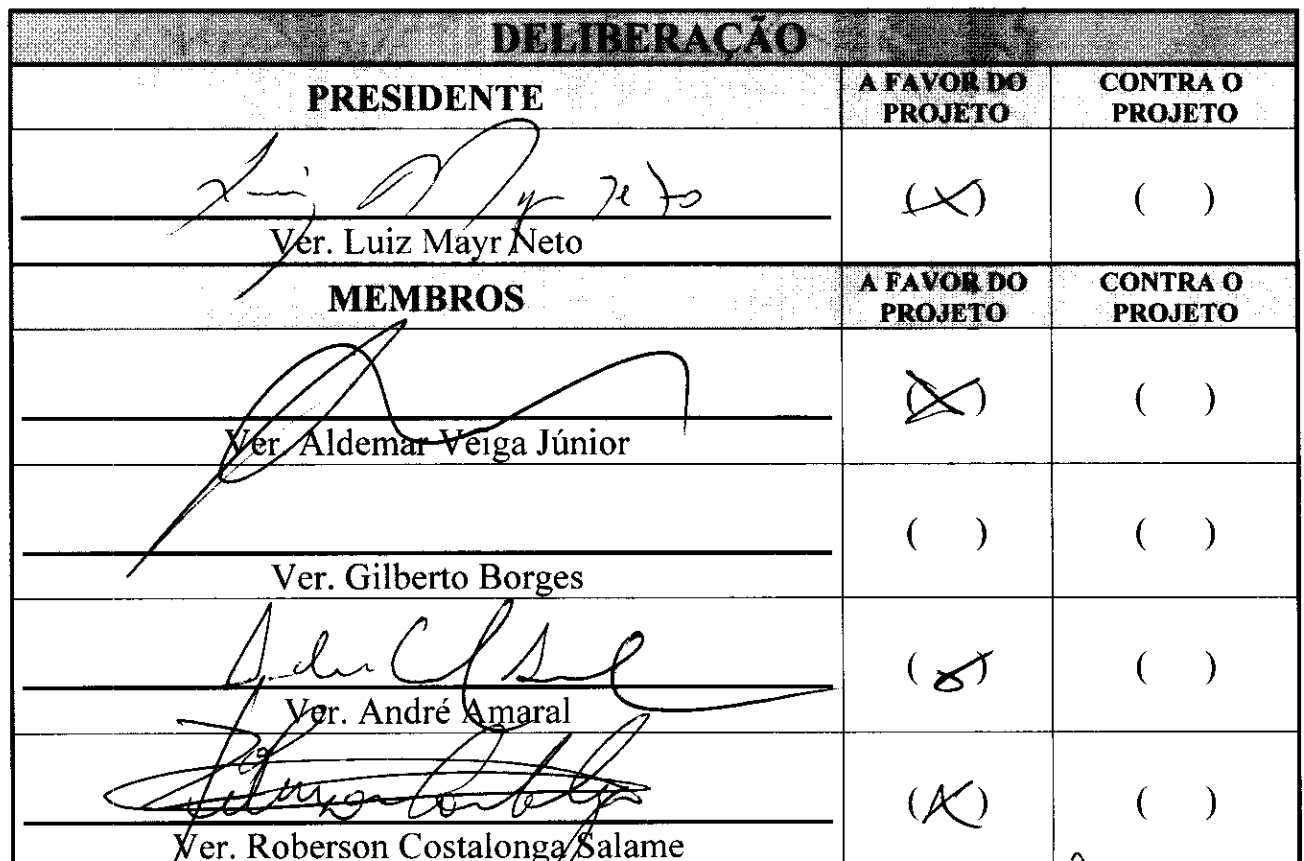 DELIBERAÇÃO
PRESIDENTE
A FAVOR DO PROJETO
CONTRA O PROJETO
Luiz Mayr Neto
(X)
( )
Ver. Luiz Mayr Neto
MEMBROS
A FAVOR DO PROJETO
CONTRA O PROJETO
(X)
( )
Ver. Aldemar Veiga Júnior
( )
( )
Ver. Gilberto Borges
(X)
( )
Ver. André Amaral
(X)
( )
Ver. Roberson Costalonga Salame